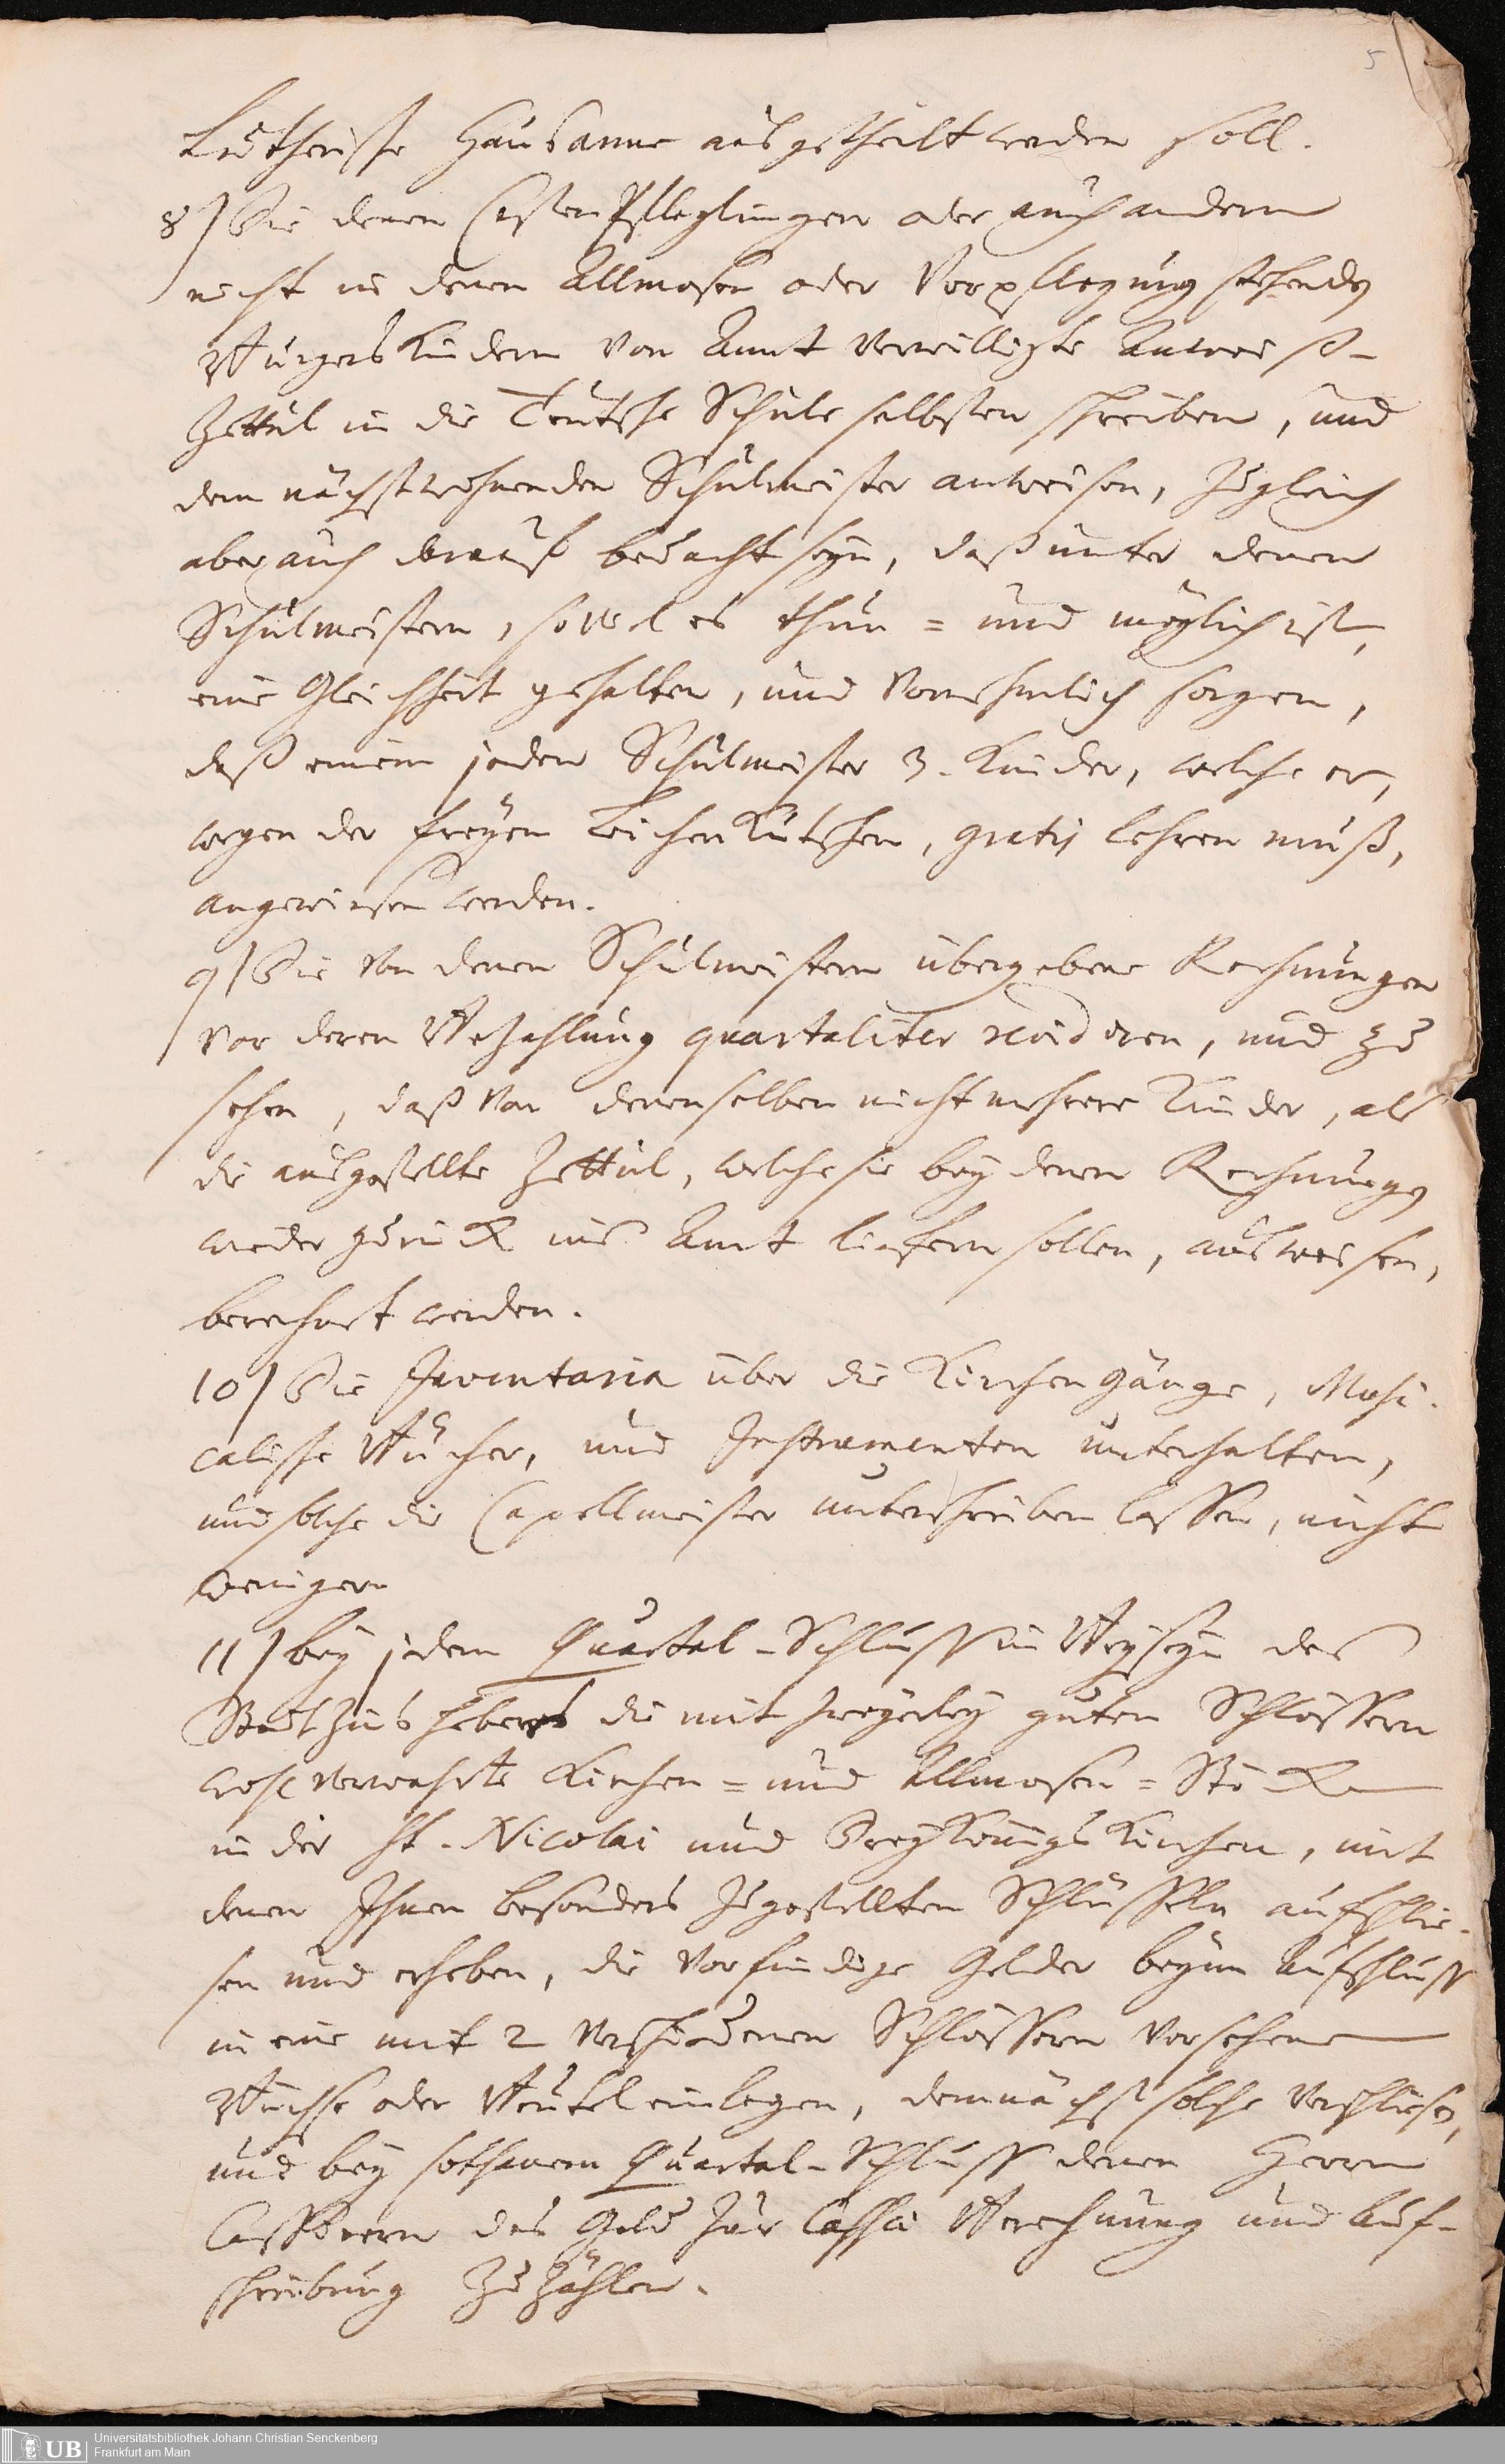 5
Lutherische Hausarme ausgetheilt werden soll.
8) Die denen Casten Pfleglingen oder auch andern
nicht in denen Allmosen oder Verpflegung stehenden
Burgers Kindern von Amt verwilligte Anweiß-
Zettul in die Teutsche Schule selbsten schreiben, und
dem nächstwohnenden Schulmeister anweisen, zugleich
aber auch darauf bedacht seyn, daß unter denen
Schulmeistern, soviel es thun= und möglich ist,
eine Gleichheit gehalten, und vornehmlich sorgen,
daß einem jeden Schulmeister 3. Kinder, welche er,
wegen der freyen Leichen Kutschen, gratis lehren muß,
angewiesen werden.
9) Die von denen Schulmeistern übergebene Rechnungen
vor deren Bezahlung quartaliter revidiren, und zu
sehen, daß von denenselben nicht mehrere Kinder, als
die ausgestellte Zettul, welche sie bey denen Rechnungen
wieder zurück ins Amt liefern sollen, ausweisen,
berechnet werden.
10) Die Inventaria über die Kirchen Gänge, Musi-
calische Bücher, und Instrumenten unterhalten,
und solche die Capellmeister unterschreiben lassen, nicht
weniger
11) bey jedem Quartal-Schluss in Beyseyn des
Stadt Zinshebers die mit zweyerley guten Schlössern
wohl verwahrte Kirchen= und Allmosen=Stöcke
in der St. Nicolai und Dreykönigs Kirchen, mit
denen Ihnen besonders zugestellten Schlüsseln aufschlie-
sen und erheben, die vorfindige Gelder beym Aufschluss
in eine mit 2 verschiedenen Schlössern versehene
Büchse oder Beutel einlegen, demnächst solche verschliesen,
und bey sothanem Quartal-Schluss denen Herrn
Cassirern das Geld zur Cassa Berechnung und Auf-
schreibung zuzählen.
UB Universitätsbibliothek Johann Christian Senckenberg
Frankfurt am Main